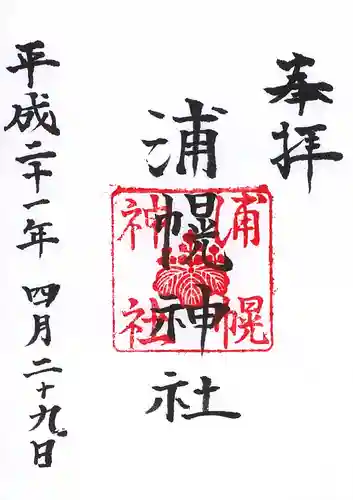 奉拝
浦幌神社
浦幌
神社
平成二十一年四月二十九日